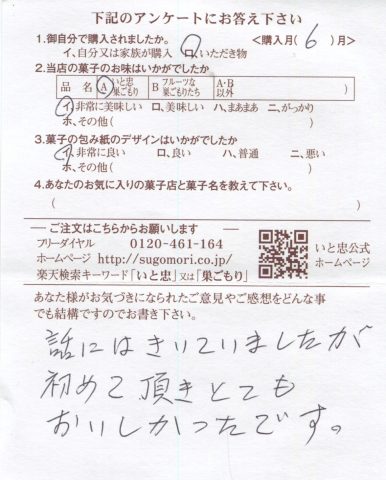 下記のアンケートにお答え下さい
1.御自分で購入されましたか。 <購入月(6)月>
イ、自分又は家族が購入 ロ、いただき物
2.当店の菓子のお味はいかがでしたか
品 名 A いと忠巣ごもり B フルーツな巣ごもりたち A・B以外 )
イ、非常に美味しい ロ、美味しい ハ、まあまあ ニ、がっかり
ホ、その他( )
3.菓子の包み紙のデザインはいかがでしたか
イ、非常に良い ロ、良い ハ、普通 ニ、悪い
ホ、その他( )
4.あなたのお気に入りの菓子店と菓子名を教えて下さい。
( )
ご注文はこちらからお願いします
フリーダイヤル 0120-461-164
ホームページ http://sugomori.co.jp/
楽天検索キーワード「いと忠」又は「巣ごもり」
いと忠公式
ホームページ
あなた様がお気づきになられたご意見やご感想をどんな事
でも結構ですのでお書き下さい。
話にはきいていましたが
初めて頂きとても
おいしかったです。